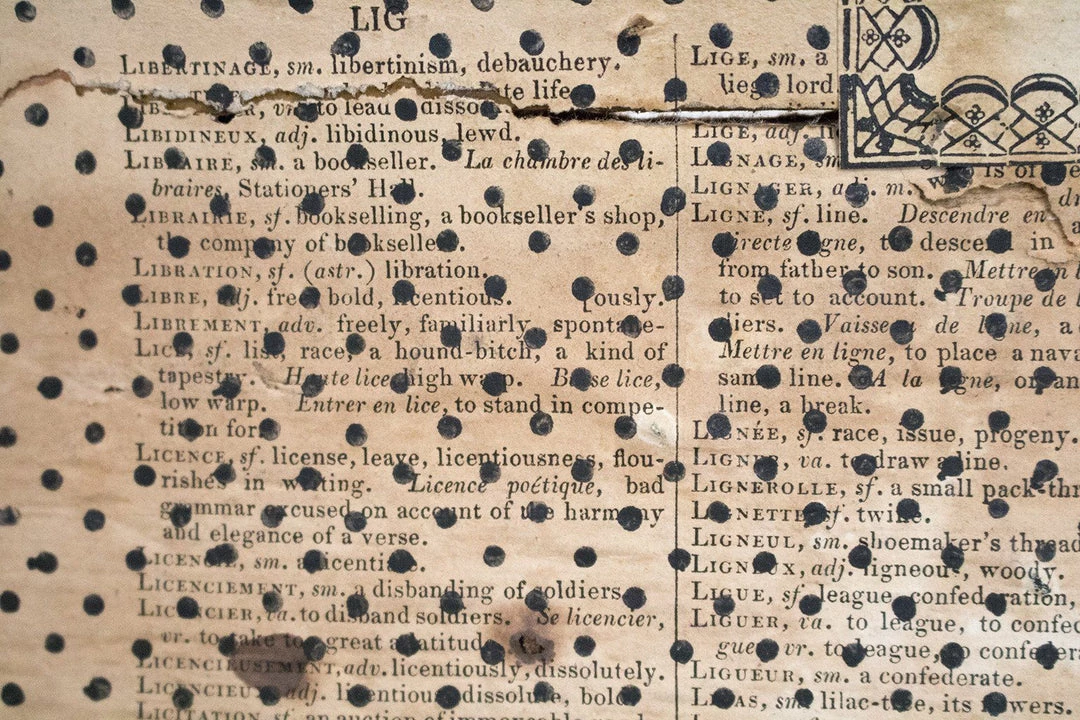 LIG
LIBERTINAGE, sm. libertinism, debauchery.
to lead life.
LIBIDINEUX, adj. libidinous, lewd.
LIBRAIRE, sm. a bookseller. La chambre des li-
braires, Stationers' Hall.
LIBRAIRIE, sf. bookselling, a bookseller's shop,
the company of booksellers.
LIBRATION, sf. (astr.) libration.
LIBRE, adj. free, bold, licentious. [ously.
LIBREMENT, adv. freely, familiarly, spontane-
LICE, sf. list, race, a hound-bitch, a kind of
tapestry. Haute lice, high warp. Basse lice,
low warp. Entrer en lice, to stand in compe-
tition for.
LICENCE, sf. license, leave, licentiousness, flou-
rishes in writing. Licence poétique, bad
grammar excused on account of the harmony
and elegance of a verse.
LICENCIÉ, sm. a licentiate.
LICENCIEMENT, sm. a disbanding of soldiers.
LICENCIER, va. to disband soldiers. Se licencier,
vr. to take to great a latitude.
LICENCIEUSEMENT, adv. licentiously, dissolutely.
LICENCIEUX, adj. licentious, dissolute, bold.
LICITATION, sf. an auction of
LIGE, sm. a
liege lord.
LIGE, adj.
LIGNAGE, sm.
LIGNAGER, adj. m.
LIGNE, sf. line. Descendre en
directe ligne, to descend in a
from father to son. Mettre en
to set to account. Troupe de
liers. Vaisseau de ligne, a
Mettre en ligne, to place a nava
same line. A la ligne, or an
line, a break.
LIGNÉE, sf. race, issue, progeny.
LIGNER, va. to draw a line.
LIGNEROLLE, sf. a small pack-thr
LIGNETTE, sf. twine.
LIGNEUL, sm. shoemaker's thread
LIGNEUX, adj. ligneous, woody.
LIGUE, sf. league, confederation,
LIGUER, va. to league, to confed
guer, vr. to league, to confedera
LIGUEUR, sm. a confederate.
LILAS, sm. lilac-tree, its flowers.